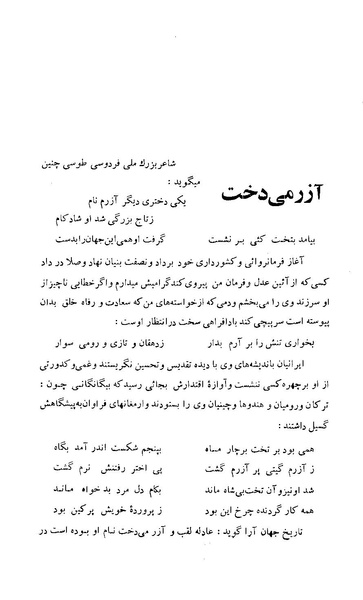 شاعر بزرگ ملی فردوسی طوسی چنین
آزرمی‌دخت
میگوید :
یکی دختری دیگر آزرم نام
ز تاج بزرگی شد او شاد کام
بیامد بتخت کئی بر نشست گرفت او همی این جهان را بدست
آغاز فرمانروائی و کشورداری خود بر داد و نصفت بنیان نهاد و صلا در داد
کسی که از آئین عدل و فرمان من پیروی کند گرامیش میدارم و اگر خطایی ناچیز از
او سر زند وی را می‌بخشم و دمی که از خواسته‌های من که سعادت و رفاه خلق بدان
پیوسته است سرپیچی کند بادافراهی سخت در انتظار اوست :
بخواری تنش را بر آرم بدار ز دهقان و تازی و رومی سوار
ایرانیان باندیشه‌های وی با دیده تقدیس و تحسین نگریستند و غمی و کدورتی
از او بر چهره کسی ننشست و آوازهٔ اقتدارش بجائی رسید که بیگانگانی چون :
ترکان و رومیان و هندوها و چینیان وی را بستودند و ارمغانهای فراوان به پیشگاهش
گسیل داشتند :
همی بود بر تخت بر چار ماه بپنجم شکست اندر آمد بگاه
ز آزرم گیتی پر آزرم گشت بی اختر رفتنش نرم گشت
شد او نیز و آن تخت بی‌شاه ماند بکام دل مرد بدخواه ماند
همه کار گردنده چرخ این بود ز پروردهٔ خویش پر کین بود
تاریخ جهان آرا گوید : عادله لقب و آزر می‌دخت نام او بوده است در